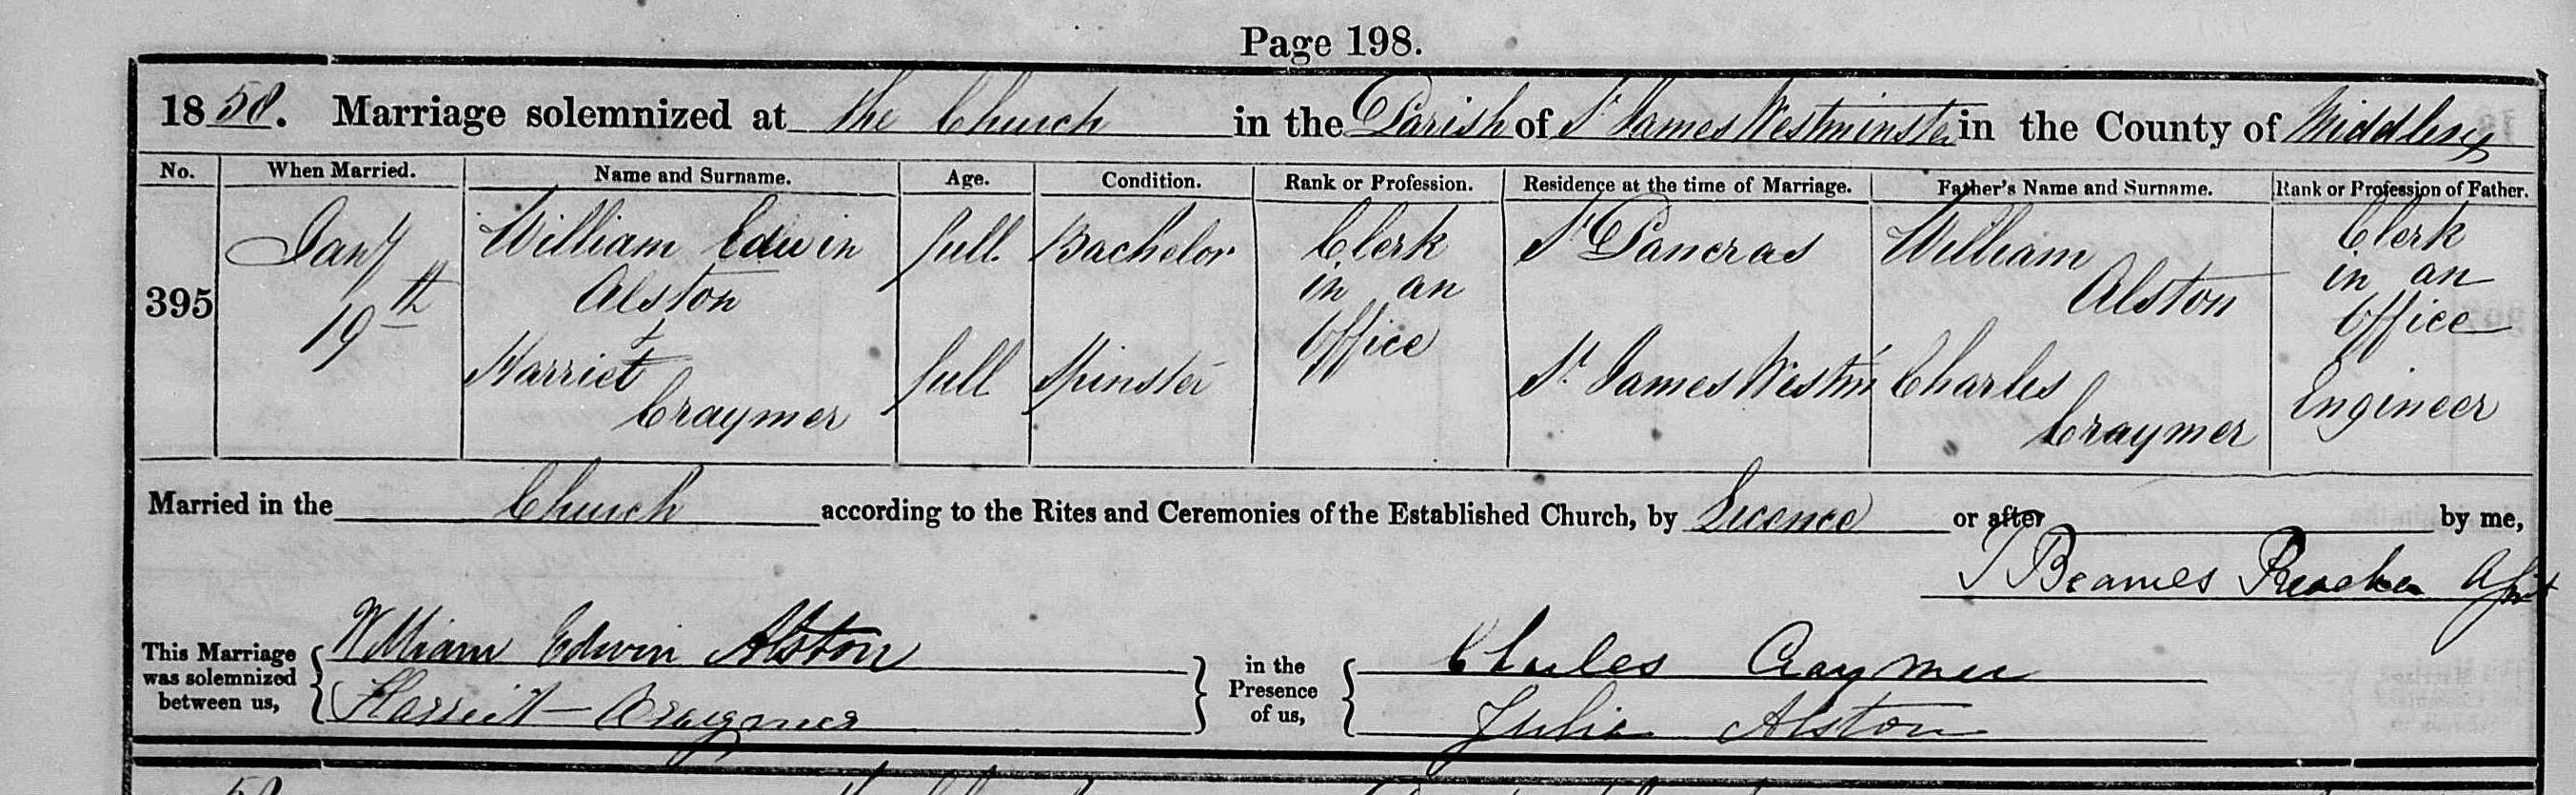 Page 198.
1858. Marriage solemnized at the Church in the Parish of St James Westminster in the County of Middlesex
No. When Married. Name and Surname. Age. Condition. Rank or Profession. Residence at the time of Marriage. Father's Name and Surname. Rank or Profession of Father.
395 Jany 19th William Edwin Alston full Bachelor Clerk in an Office St Pancras William Alston Clerk in an Office
& Harriet Craymer full Spinster St James Westmr Charles Craymer Engineer
Married in the Church according to the Rites and Ceremonies of the Established Church, by Licence or after by me,
J Beames Preacher Asst
This Marriage was solemnized between us, William Edwin Alston in the Presence of us, Charles Craymer
Harriet Craymer Julia Alston
58